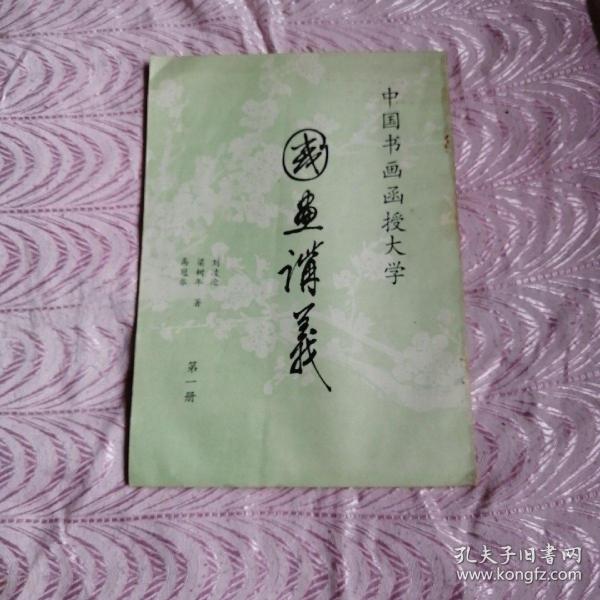 中国书画函授大学
國畫講義
刘凌沧
梁树年
高冠华
著
第一册
孔夫子旧书网
www.kongfz.com